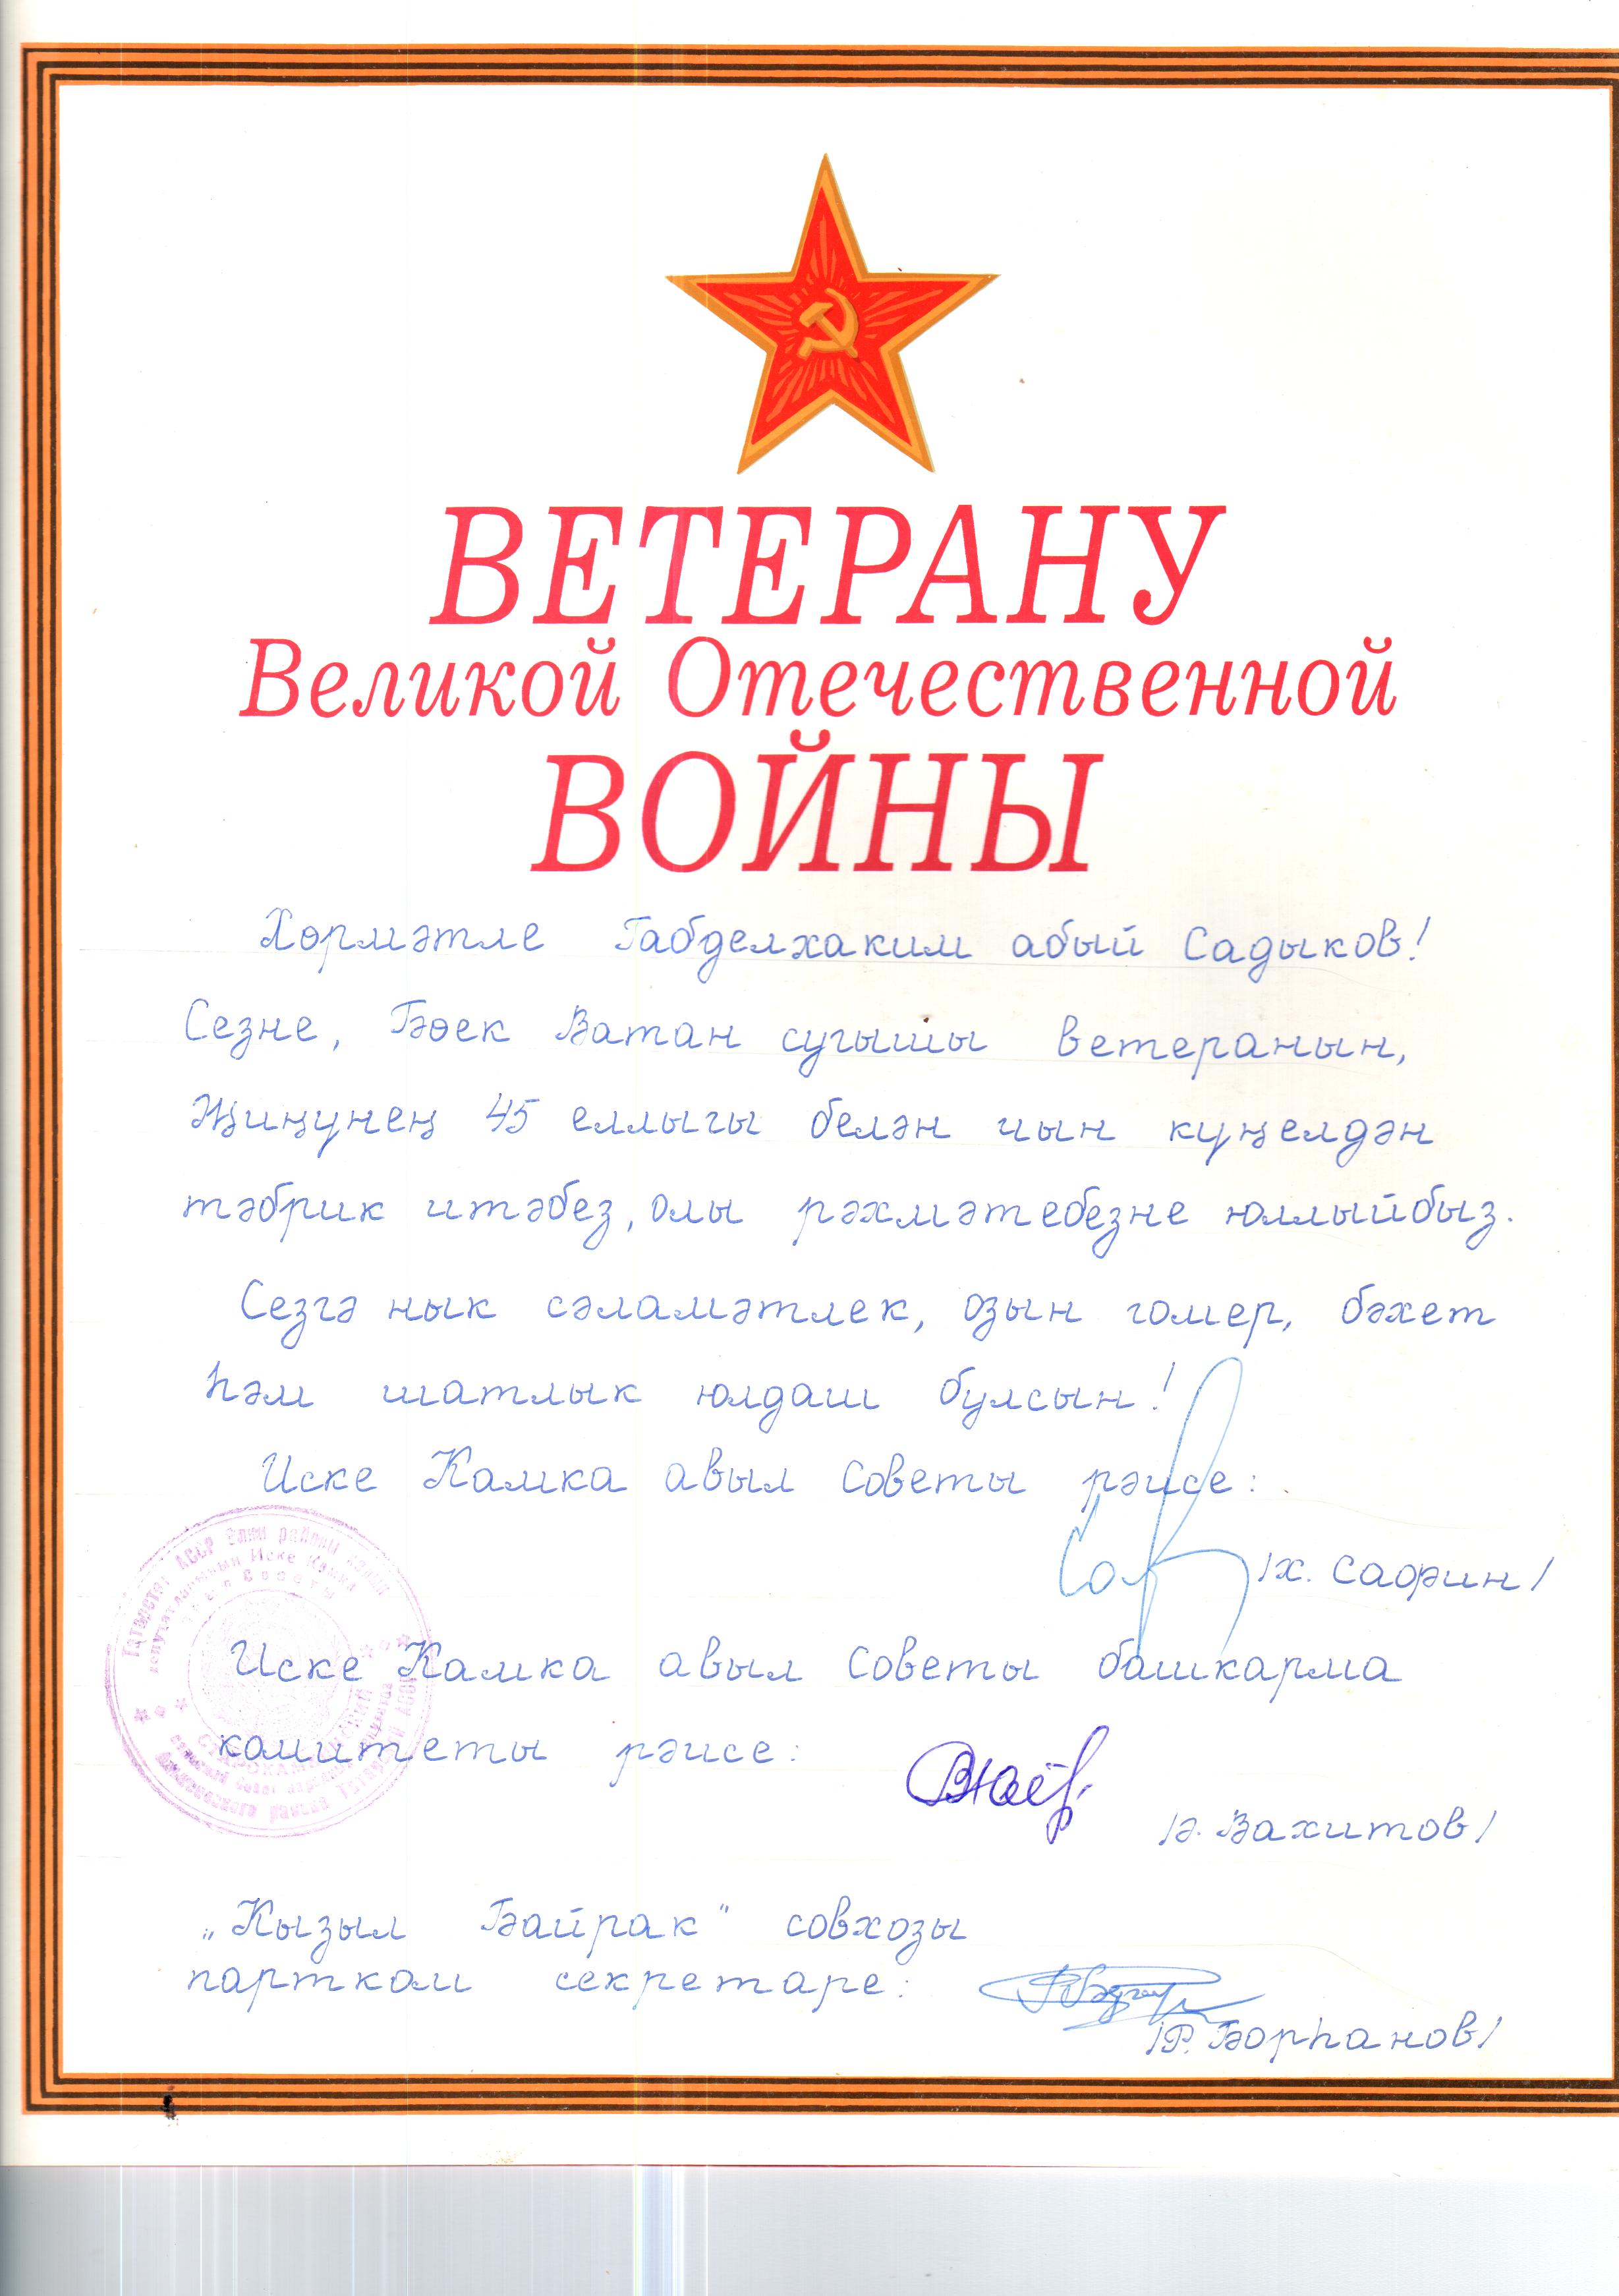 ВЕТЕРАНУ
Великой Отечественной
ВОЙНЫ
Хөрмәтле Габделхаким абый Садыков!
Сезне, Бөек Ватан сугышы ветеранын,
Җиңүнең 45 еллыгы белән чын күңелдән
тәбрик итәбез, олы рәхмәтебезне юллыйбыз.
Сезгә нык сәламәтлек, озын гомер, бәхет
һәм шатлык юлдаш булсын!
Иске Камка авыл Советы рәисе:
/Х. Сафин/
Иске Камка авыл Советы башкарма
комитеты рәисе:
/Ә. Вахитов/
„Кызыл Байрак" совхозы
парткам секретаре:
/Р. Борһанов/